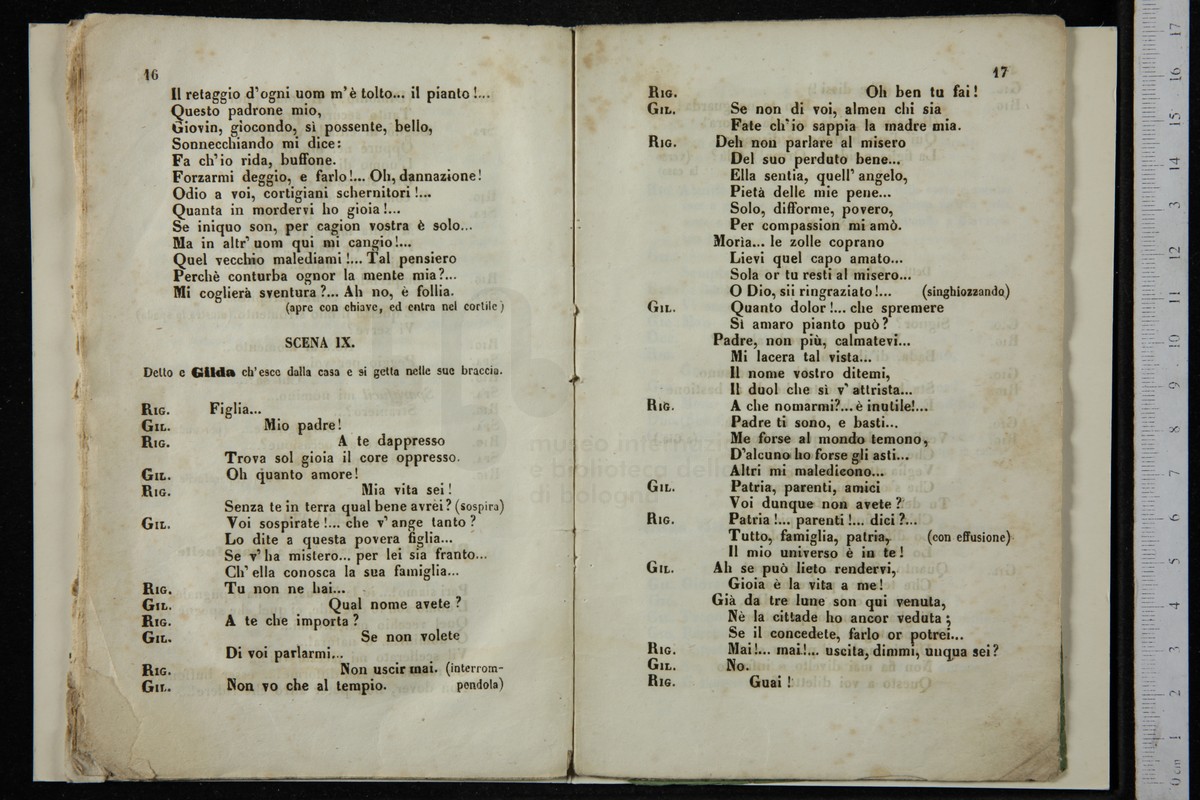 16
Il retaggio d'ogni uom m'è tolto... il pianto!...
Questo padrone mio,
Giovin, giocondo, sì possente, bello,
Sonnecchiando mi dice:
Fa ch'io rida, buffone.
Forzarmi deggio, e farlo!... Oh, dannazione!
Odio a voi, cortigiani schernitori!...
Quanta in mordervi ho gioia!...
Se iniquo son, per cagion vostra è solo...
Ma in altr'uom qui mi cangio!...
Quel vecchio malediami!... Tal pensiero
Perchè conturba ognor la mente mia?...
Mi coglierà sventura?... Ah no, è follia.
(apre con chiave, ed entra nel cortile)
SCENA IX.
Detto e Gilda ch'esce dalla casa e si getta nelle sue braccia.
RIG. Figlia...
GIL. Mio padre!
RIG. A te dappresso
Trova sol gioia il core oppresso.
GIL. Oh quanto amore!
RIG. Mia vita sei!
Senza te in terra qual bene avrei? (sospira)
GIL. Voi sospirate!... che v'ange tanto?
Lo dite a questa povera figlia...
Se v'ha mistero... per lei sia franto...
Ch'ella conosca la sua famiglia...
RIG. Tu non ne hai...
GIL. Qual nome avete?
RIG. A te che importa?
GIL. Se non volete
Di voi parlarmi...
RIG. Non uscir mai. (interrom-
GIL. Non vo che al tempio. pendola)
17
RIG. Oh ben tu fai!
GIL. Se non di voi, almen chi sia
Fate ch'io sappia la madre mia.
RIG. Deh non parlare al misero
Del suo perduto bene...
Ella sentia, quell'angelo,
Pietà delle mie pene...
Solo, difforme, povero,
Per compassion mi amò.
Morìa... le zolle coprano
Lievi quel capo amato...
Sola or tu resti al misero...
O Dio, sii ringraziato!... (singhiozzando)
GIL. Quanto dolor!... che spremere
Sì amaro pianto può?
Padre, non più, calmatevi...
Mi lacera tal vista...
Il nome vostro ditemi,
Il duol che sì v'attrista...
RIG. A che nomarmi?... è inutile!...
Padre ti sono, e basti...
Me forse al mondo temono,
D'alcuno ho forse gli asti...
Altri mi maledicono...
GIL. Patria, parenti, amici
Voi dunque non avete?
RIG. Patria!... parenti!... dici?...
Tutto, famiglia, patria, (con effusione)
Il mio universo è in te!
GIL. Ah se può lieto rendervi,
Gioia è la vita a me!
Già da tre lune son qui venuta,
Nè la cittade ho ancor veduta;
Se il concedete, farlo or potrei...
RIG. Mai!... mai!... uscita, dimmi, unqua sei?
GIL. No.
RIG. Guai!